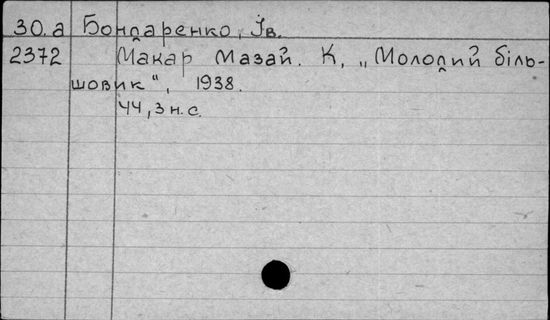 30.а Бондаренко, Ів.
2372 Макар Мазай. К, „Молодий біль-
шовик", 1938.
44, 3 н. с.